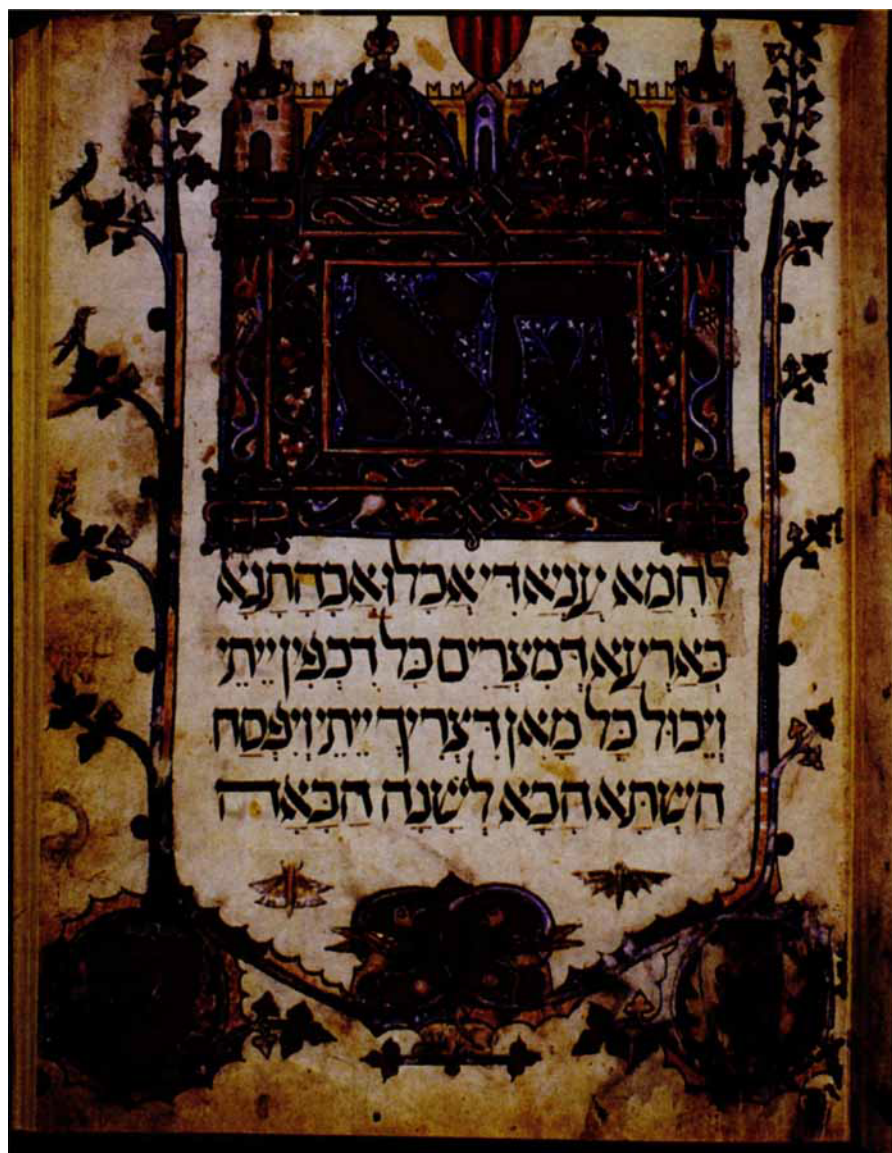 הא
לַחְמָא עַנְיָא דִּי אֲכַלוּ אַבָהָתָנָא
בְּאַרְעָא דְּמִצְרַיִם כָּל דִכְפִין יֵיתֵי
וְיֵכוּל כָּל מָאן דִּצְרִיךְ יֵיתֵי וְיִפְסַח
הַשְׁתָּא הָכָא לְשָׁנָה הַבָּאָה